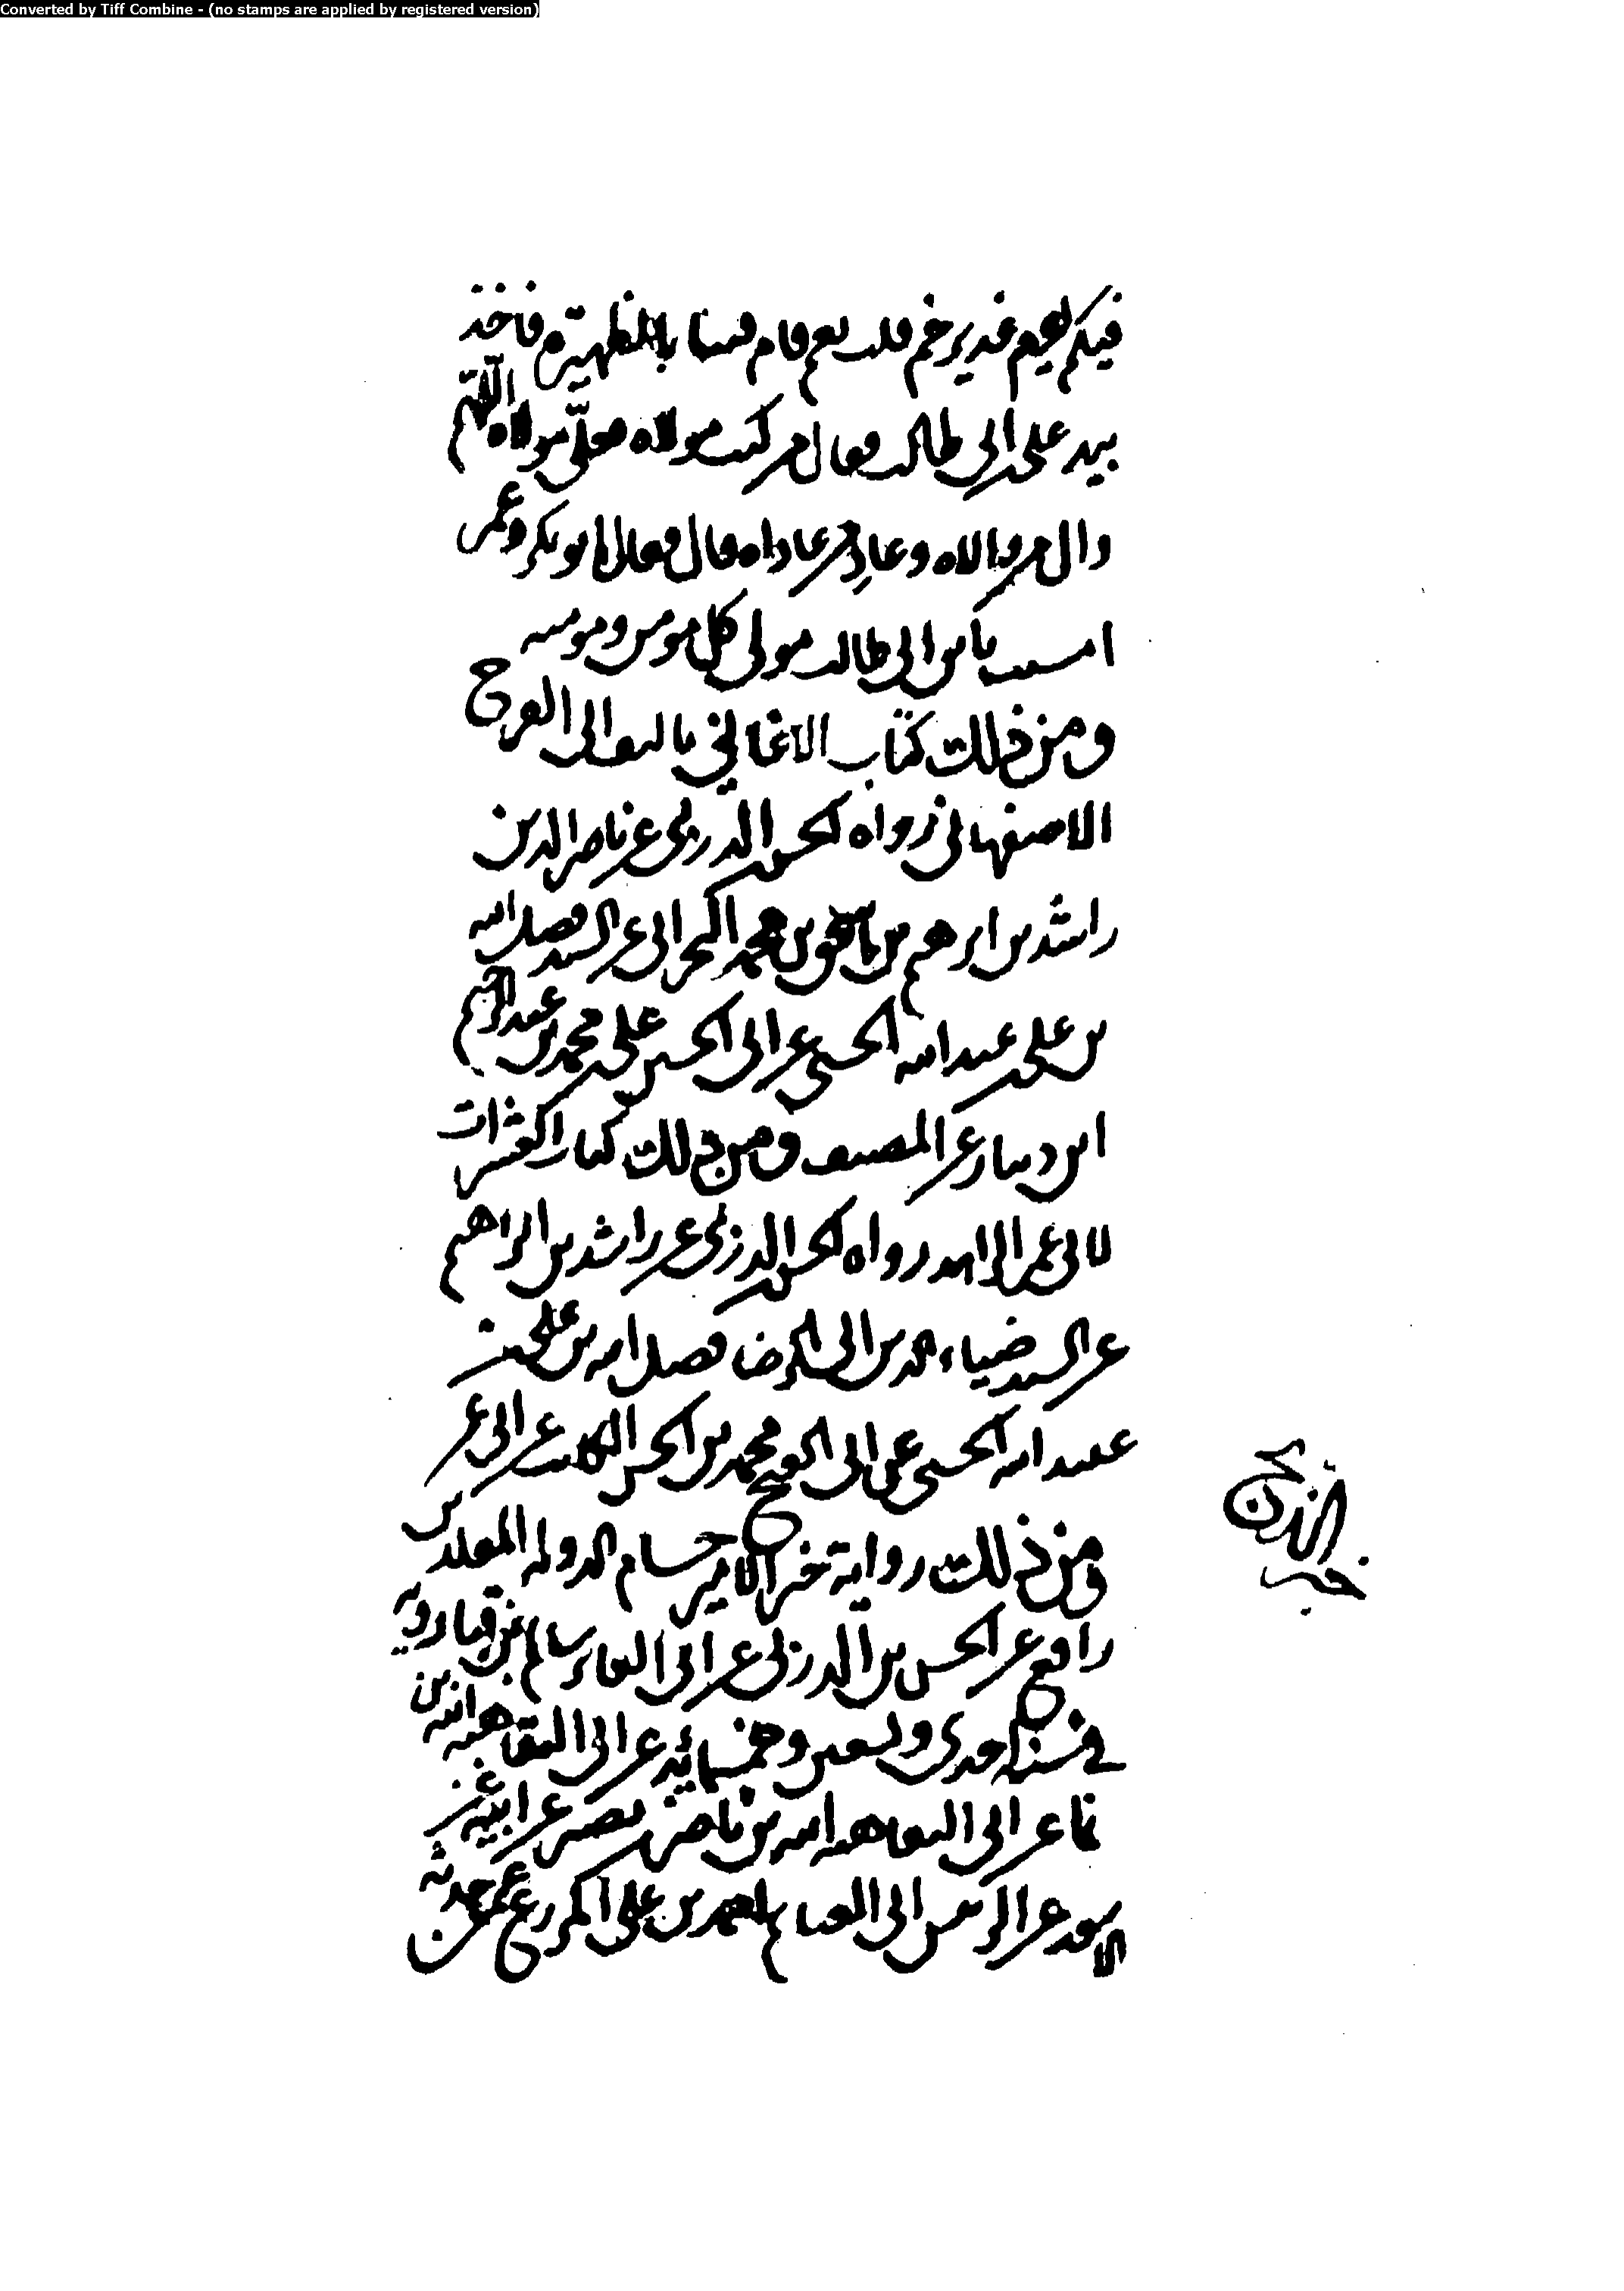 Converted by Tiff Combine - (no stamps are applied by registered version)
فيكم يوم غدير خم قلت نعم قام فينا بالظهيرة فاخذ
بيد علي بن ابي طالب فقال من كنت مولاه فعليّ مولاه اللهم
وال من والاه وعادِ من عاداه قال فقال ابو بكر وعمر
امسيت يا بن ابي طالب مولى كل مومن ومومنه
ومن ذلك كتاب الاغاني تاليف ابي الفرج
الاصفهاني رواه الحسن بن الدربي عن ناصر الدين
راشد بن ابرهيم بن اسحق بن محمد البحراني عن السيد فضل الله
بن علي بن عبد الله الحسني عن ابي الحسين علي بن محمد بن عبد الرحيم
ابن دينار عن المصنف ومن ذلك كتاب
لابي عمر الزاهد رواه الحسن بن الدربي عن راشد بن ابراهيم
عن السيد ضياء الدين ابي الرضا فضل الله بن علي بن
عبيد الله الحسني عن ابي الفتح محمد بن الحسن الكاتب عن ابي عمر
ومن ذلك رواية الامير حسام الدولة المقلد بن
رافع عن الحسن بن الدربي عن ابي الفايز سالم بن قبادويه
في سنة احدى وتسعين وخمسمائة عن ابي البقا هبة الله بن
نما عن ابي البقا هبة الله بن ناصر بن نصير عن ابيه عن
الاسعد عن الرئيس ابي العباس احمد بن علي عمن حدثه
الدين